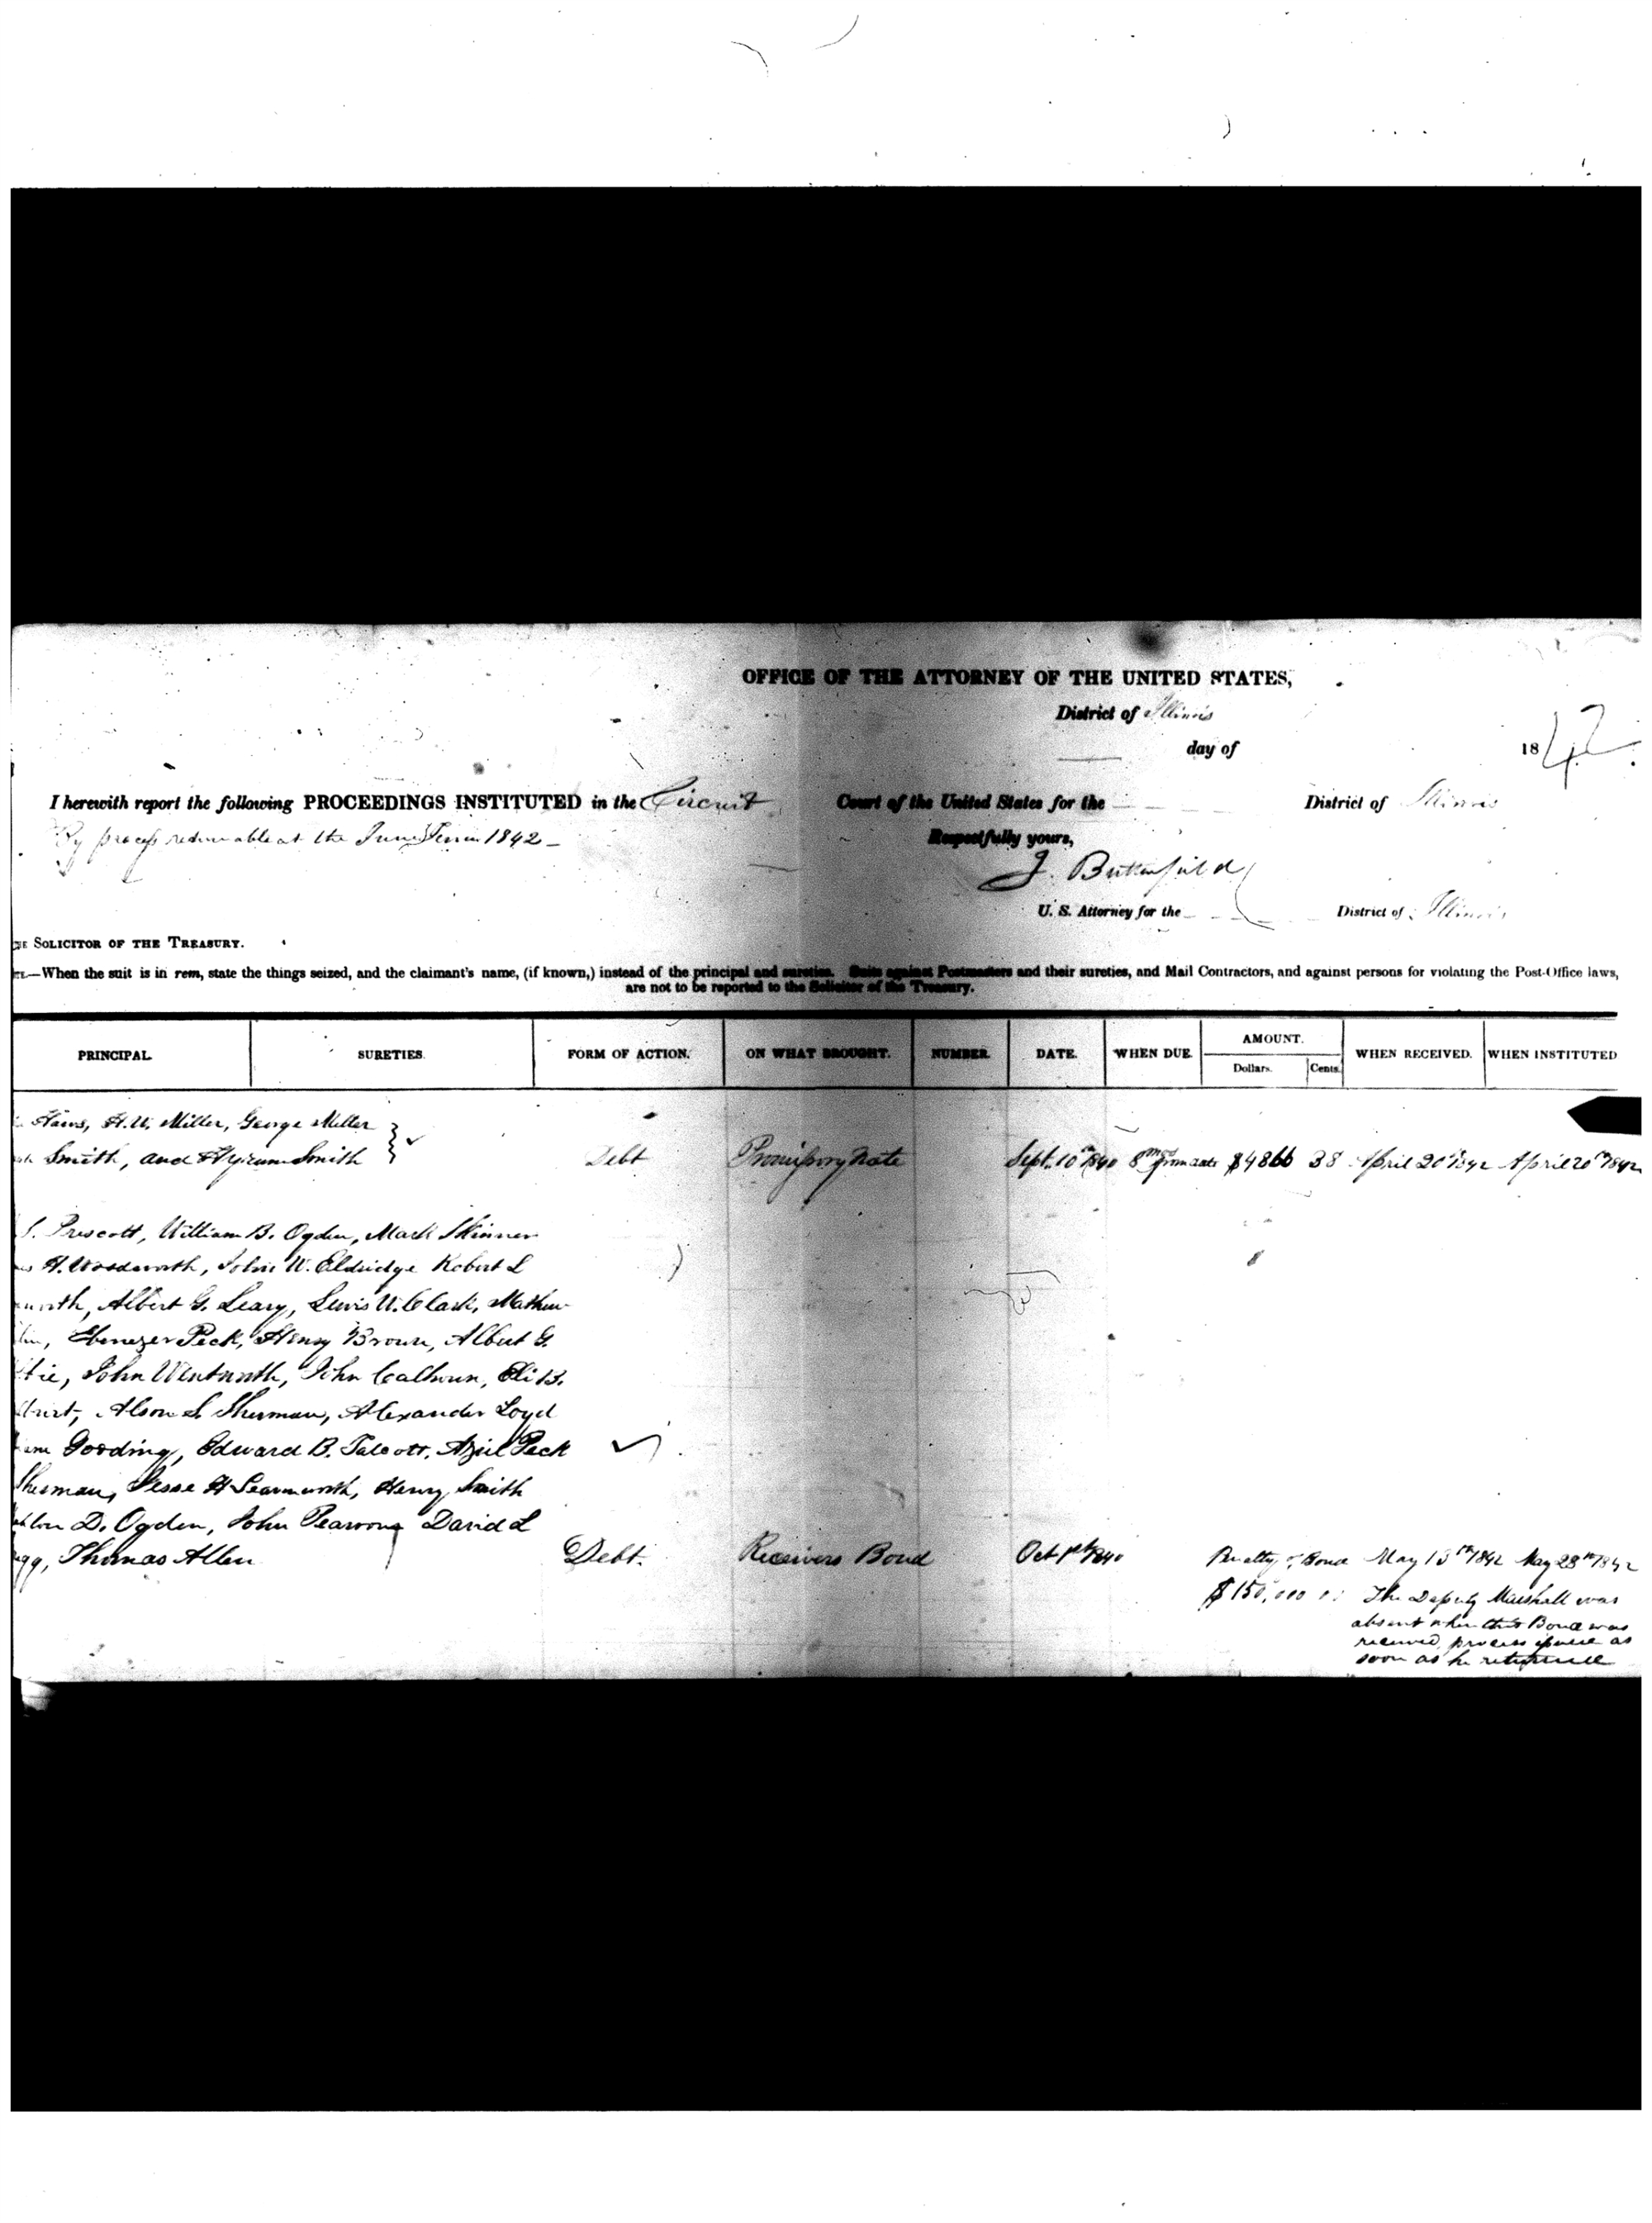 OFFICE OF THE ATTORNEY OF THE UNITED STATES,
District of Illinois
day of 1842
I herewith report the following PROCEEDINGS INSTITUTED in the Circuit Court of the United States for the District of Illinois
By process returnable at the June Term 1842 –
Respectfully yours,
J. Butterfield
U. S. Attorney for the District of Illinois
SOLICITOR OF THE TREASURY.
—When the suit is in rem, state the things seized, and the claimant's name, (if known,) instead of the principal and sureties. Suits against Postmasters and their sureties, and Mail Contractors, and against persons for violating the Post-Office laws,
are not to be reported to the Solicitor of the Treasury.
PRINCIPAL. SURETIES. FORM OF ACTION. ON WHAT BROUGHT. NUMBER. DATE. WHEN DUE. AMOUNT. Dollars. Cents. WHEN RECEIVED. WHEN INSTITUTED
Haws, H. W. Miller, George Miller
Smith, and Hyrum Smith Debt Promissory Note Sept. 10th 1840 8 mos from date $4866 38 April 20th 1842 April 20th 1842
S. Prescott, William B. Ogden, Mark Skinner
H. Woodworth, John W. Eldridge Robert L
worth, Albert G. Leary, Lewis W. Clark, Mathew
lin, Ebenezer Peck, Henry Brown, Albert G.
tie, John Wentworth, John Calhoun, Eli B.
Alson S Sherman, Alexander Loyd
Gooding, Edward B. Talcott, Aziel Peck
Sherman, Jesse H Leavenworth, Henry Smith
D. Ogden, John Pearsons David L
gg, Thomas Allen Debt. Receivers Bond Oct 1st 1840 Penalty of Bond May 13th 1842 May 28th 1842
$150,000 The Deputy Marshall was
absent when this Bond was
received, process issued as
soon as he returned